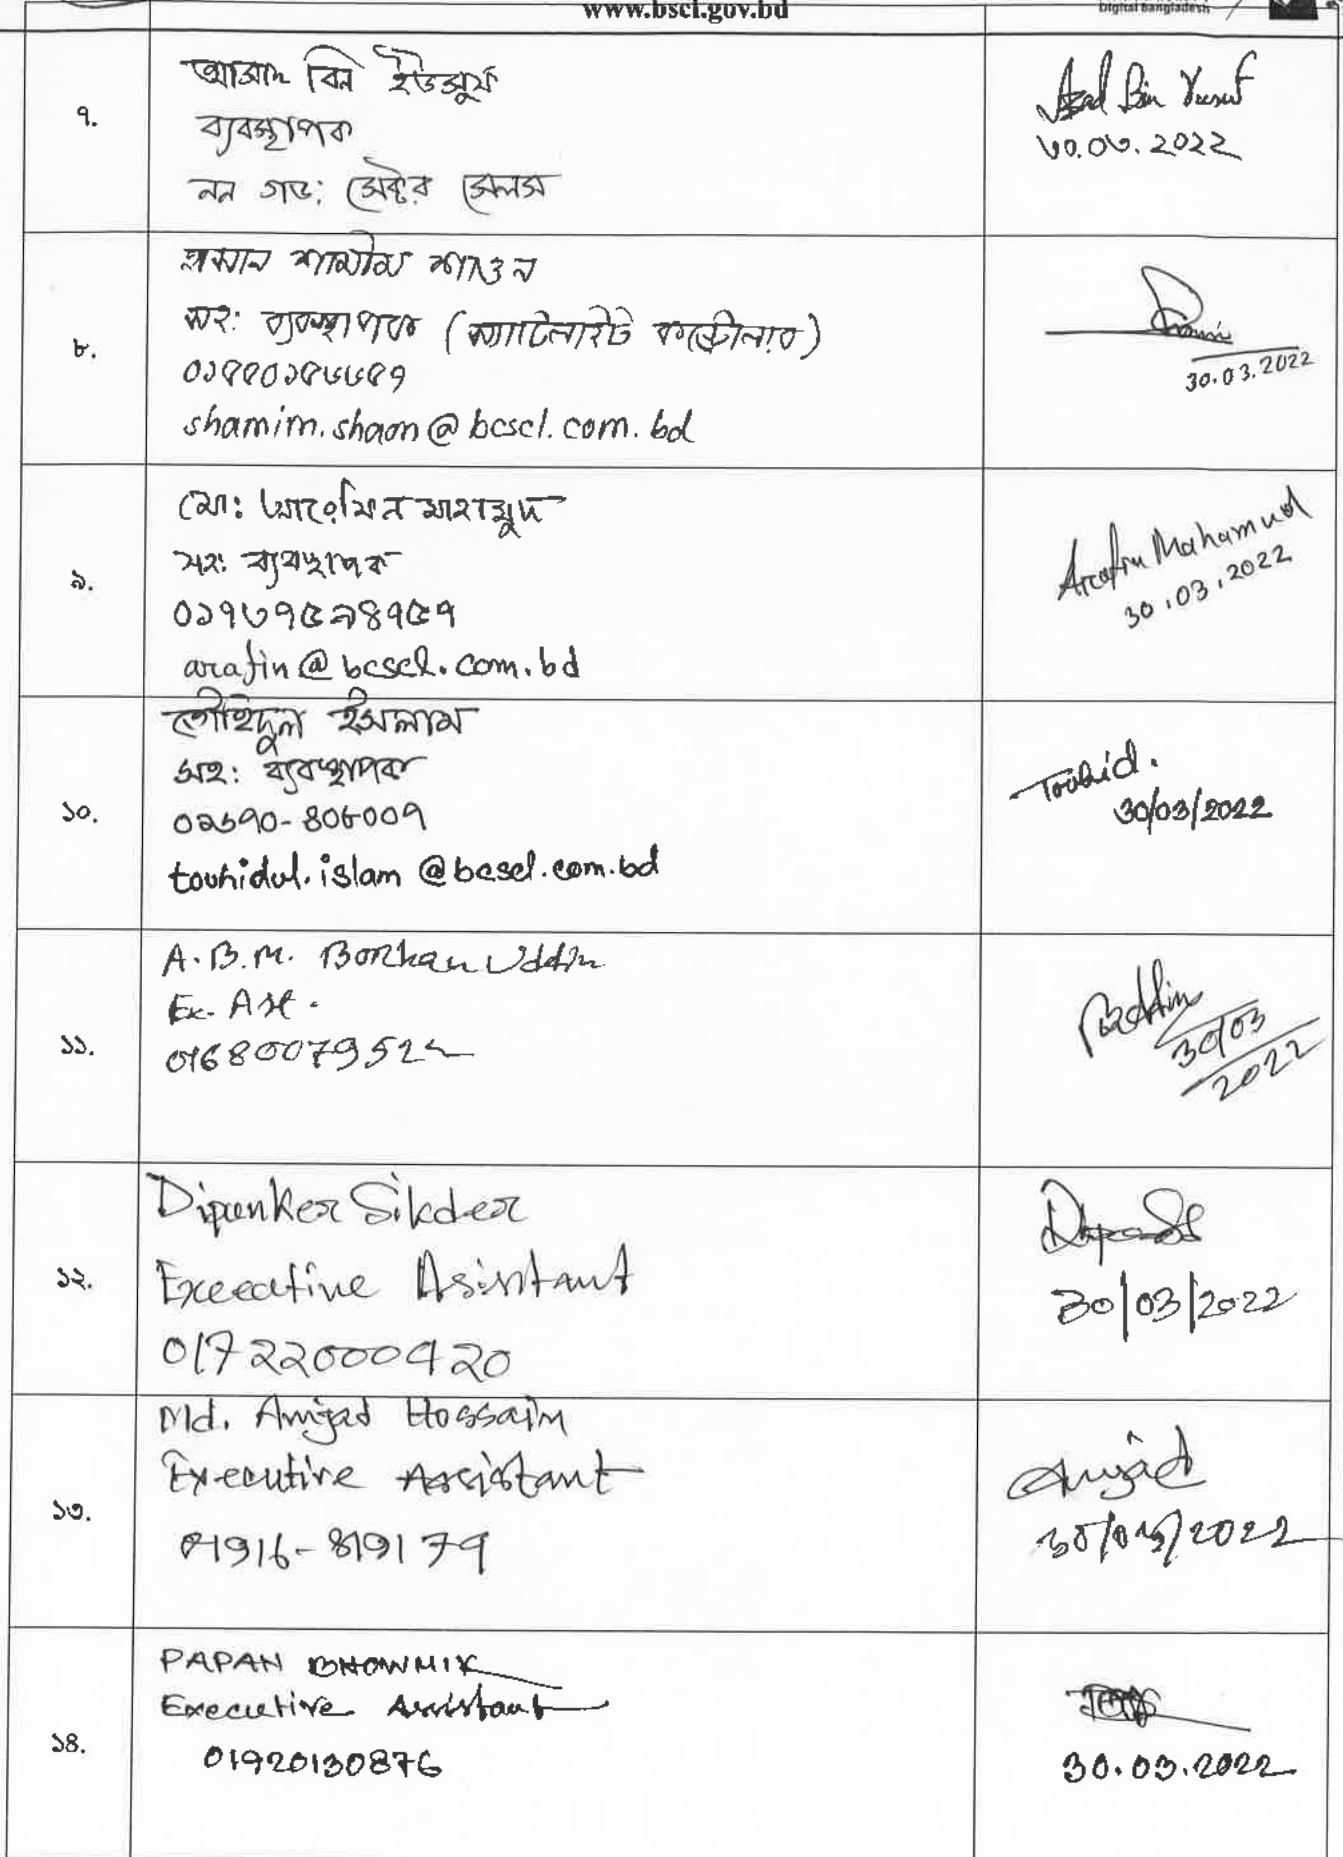 www.bscl.gov.bd
Digital Bangladesh
৭.
আসাদ বিন ইউসুফ
ব্যবস্থাপক
নন গভ: সেক্টর সেলস
Azad Bin Yusuf
৩০.০৩.2022
৮.
শামীম শাওন
সহ: ব্যবস্থাপক (স্যাটেলাইট কন্ট্রোলার)
shamim.shaon@bcscl.com.bd
30.03.2022
৯.
মো: আরেফিন মাহামুদ
সহ: ব্যবস্থাপক
০১৭৩৭৫৯৪৭৫৭
arafin@bcscl.com.bd
Arefin Mahamud
30.03.2022
১০.
তৌহিদুল ইসলাম
সহ: ব্যবস্থাপক
touhidul.islam@bcscl.com.bd
Touhid.
30/03/2022
১১.
A.B.M. Borhan Uddin
Ex. Ast.
01680079522
30/03
2022
১২.
Dipanker Sikder
Executive Asistant
01722000920
30/03/2022
১৩.
Md. Amjad Hossain
Executive Assistant
01916-819179
Amjad
30/03/2022
১৪.
PAPAN BHOWMIK
Executive Assistant
01920130876
30.03.2022